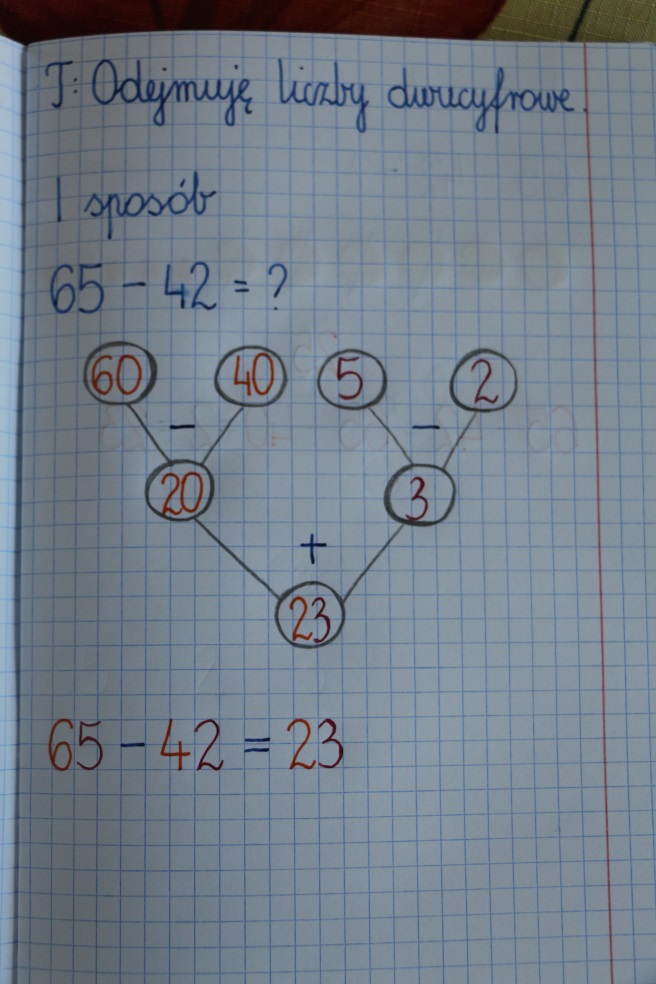 T: Odejmuję liczby dwucyfrowe.
I sposób
65 - 42 = ?
60 40 5 2
- -
20 3
+
23
65 - 42 = 23